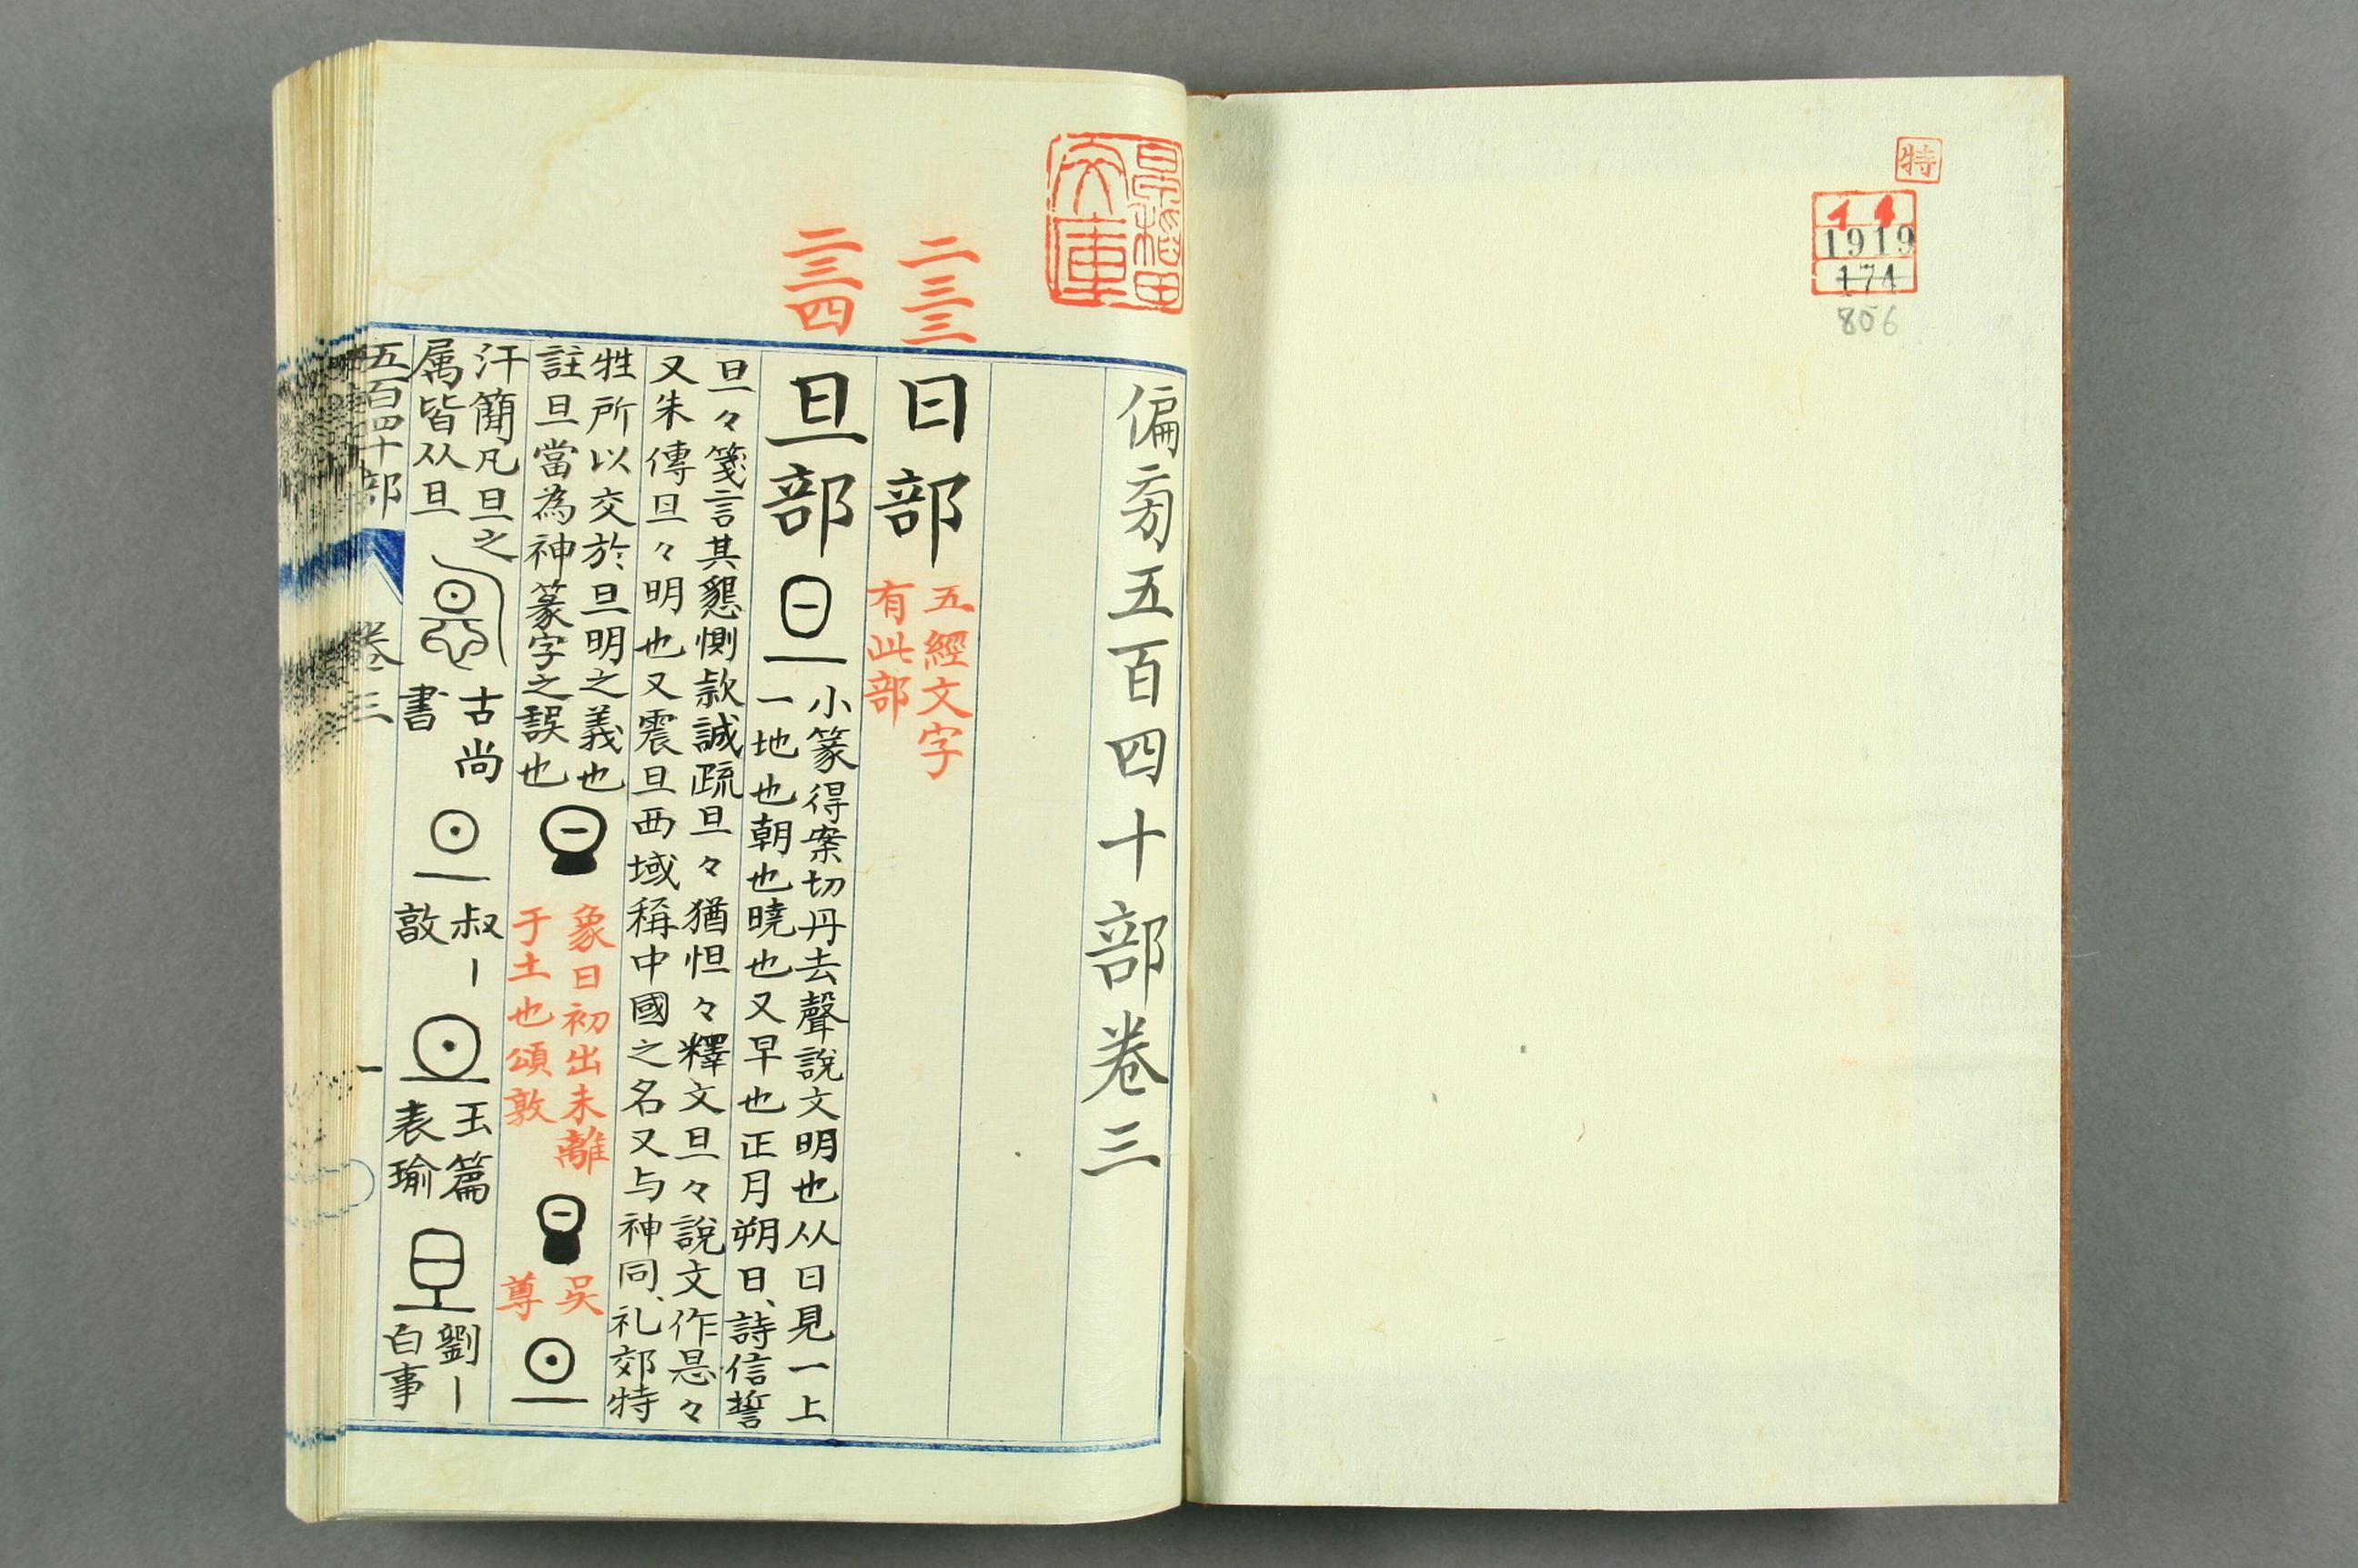 特
1919
174
806
早稲田
文庫
偏旁五百四十部卷三
二三三
日部
五經文字
有此部
二三四
旦部
小篆得案切丹去聲說文明也从日見一上
一地也朝也曉也又早也正月朔日、詩信誓
旦々箋言其懇惻款誠疏旦々猶怛々釋文旦々說文作悬々
又朱傳旦々明也又震旦西域稱中國之名又与神同、礼郊特
牲所以交於旦明之義也
註旦當為神篆字之誤也
象日初出未離
于土也頌敦
吳
尊
汗簡凡旦之
属皆从旦
古尚
書
叔丨
敦
玉篇
表瑜
劉丨
白事
五百四十部
卷三
一